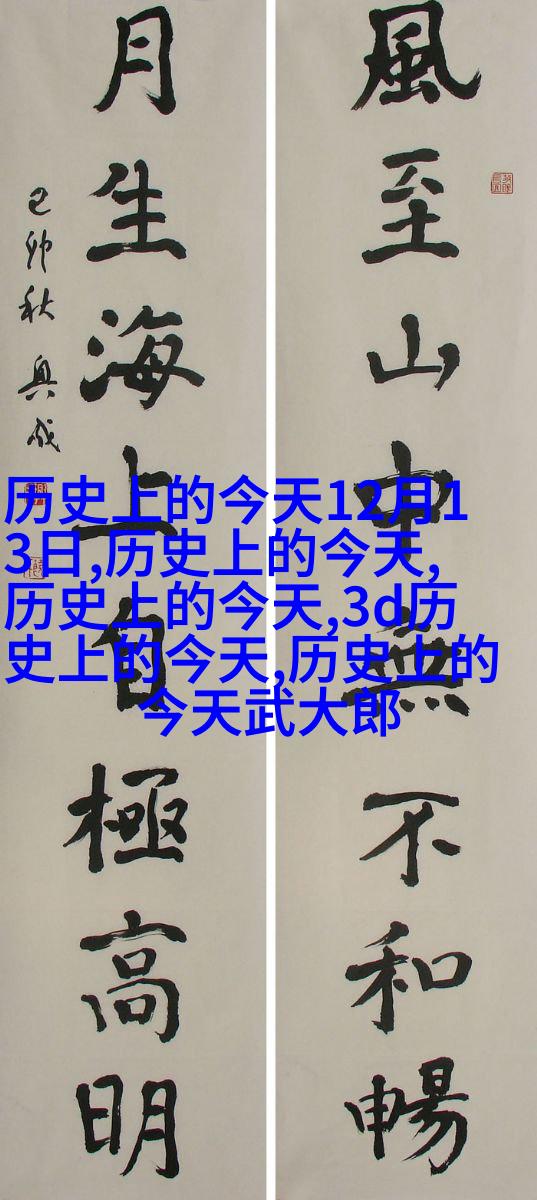 風至山中無不和暢
月生海上自極高明
己卯秋 興成
历史上的今天12月1
3日,历史上的今天,
历史上的今天,3d历
史上的今天,历史上的
今天武大郎